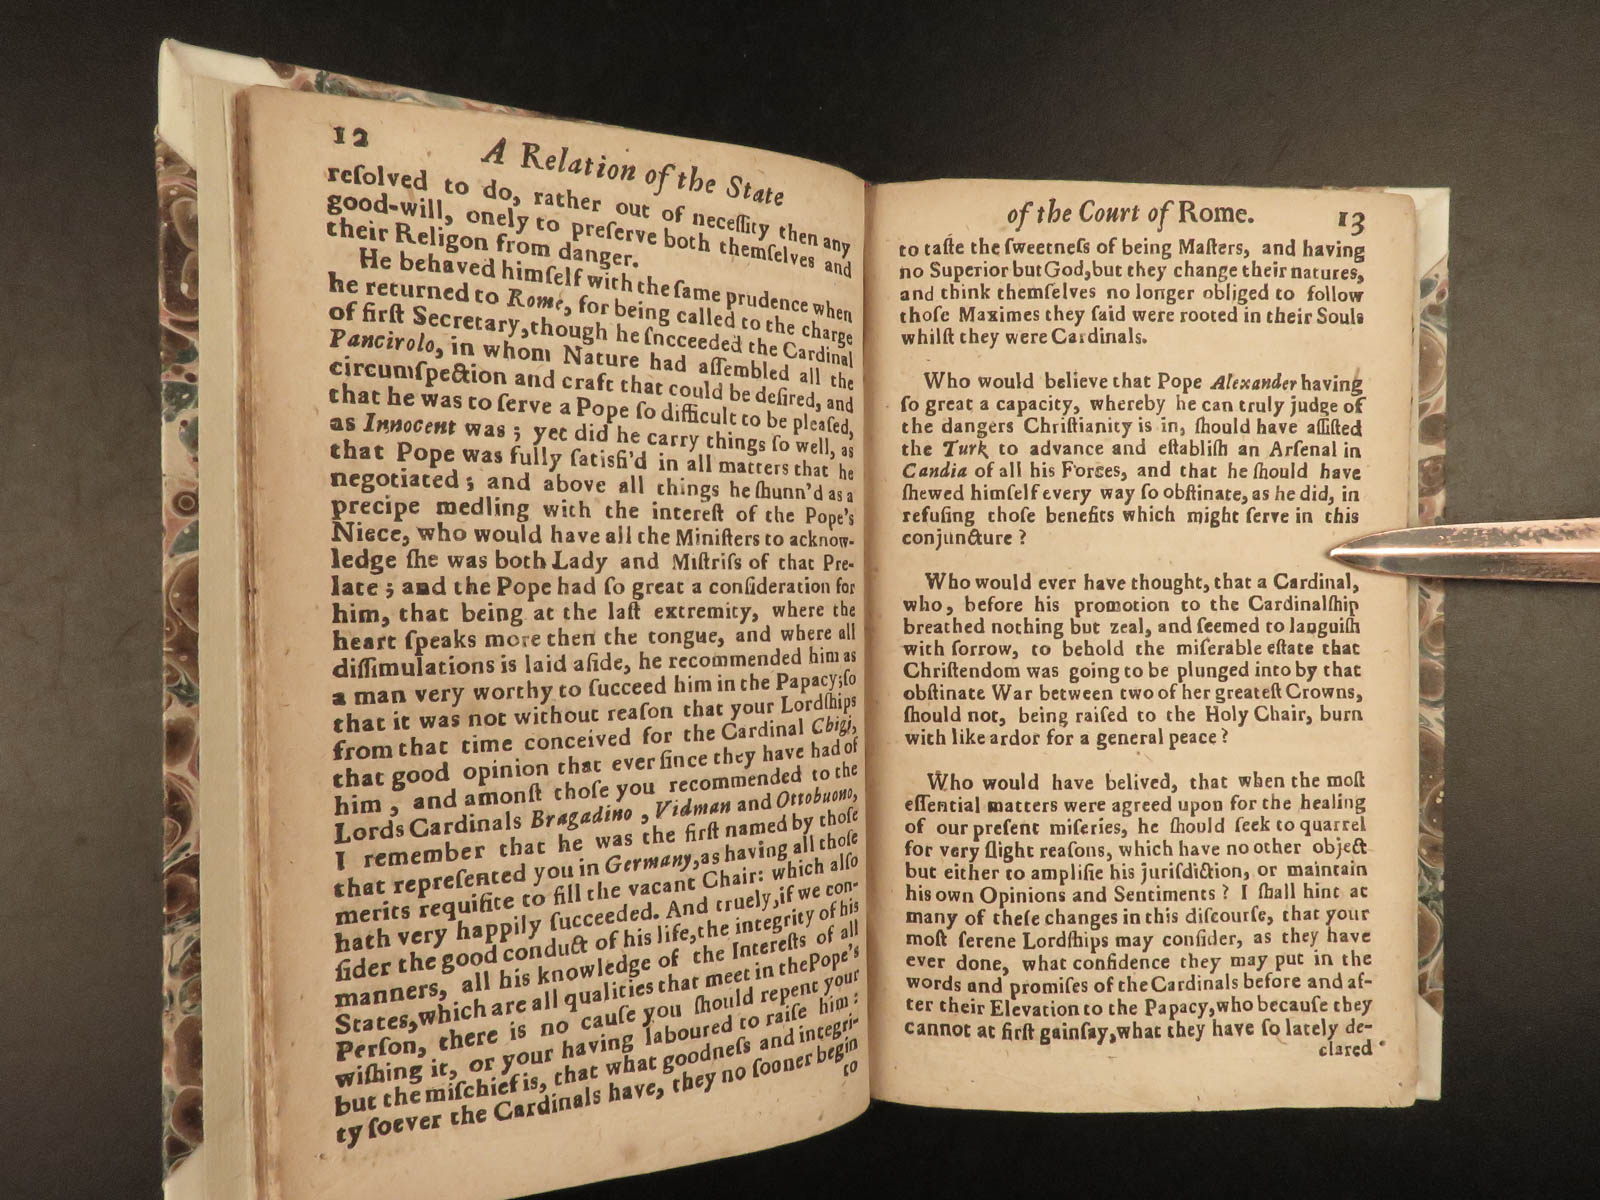 12
A Relation of the State
reſolved to do, rather out of neceſſity then any
good-will, onely to preſerve both themſelves and
their Religon from danger.
He behaved himſelf with the ſame prudence when
he returned to Rome, for being called to the charge
of firſt Secretary,though he ſncceeded the Cardinal
Pancirolo, in whom Nature had aſſembled all the
circumſpection and craft that could be deſired, and
that he was to ſerve a Pope ſo difficult to be pleaſed,
as Innocent was ; yet did he carry things ſo well, as
that Pope was fully ſatisfi'd in all matters that he
negotiated ; and above all things he ſhunn'd as a
precipe medling with the intereſt of the Pope's
Niece, who would have all the Miniſters to acknow-
ledge ſhe was both Lady and Miſtriſs of that Pre-
late ; and the Pope had ſo great a conſideration for
him, that being at the laſt extremity, where the
heart ſpeaks more then the tongue, and where all
diſſimulations is laid aſide, he recommended him as
a man very worthy to ſucceed him in the Papacy;ſo
that it was not without reaſon that your Lordſhips
from that time conceived for the Cardinal Chigi,
that good opinion that ever ſince they have had of
him , and amonſt thoſe you recommended to the
Lords Cardinals Bragadino , Vidman and Ottobuono,
I remember that he was the firſt named by thoſe
that repreſented you in Germany,as having all thoſe
merits requiſite to fill the vacant Chair: which alſo
hath very happily ſucceeded. And truely,if we con-
ſider the good conduct of his life,the integrity of his
manners, all his knowledge of the Intereſts of all
States,which are all qualities that meet in the Pope's
Perſon, there is no cauſe you ſhould repent your
wiſhing it, or your having laboured to raiſe him :
but the miſchief is, that what goodneſs and integri-
ty ſoever the Cardinals have, they no ſooner begin
to
of the Court of Rome.
13
to taſte the ſweetneſs of being Maſters, and having
no Superior but God,but they change their natures,
and think themſelves no longer obliged to follow
thoſe Maximes they ſaid were rooted in their Souls
whilſt they were Cardinals.
Who would believe that Pope Alexander having
ſo great a capacity, whereby he can truly judge of
the dangers Chriſtianity is in, ſhould have aſſiſted
the Turk to advance and eſtabliſh an Arſenal in
Candia of all his Forces, and that he ſhould have
ſhewed himſelf every way ſo obſtinate, as he did, in
refuſing thoſe benefits which might ſerve in this
conjuncture ?
Who would ever have thought, that a Cardinal,
who, before his promotion to the Cardinalſhip
breathed nothing but zeal, and ſeemed to languiſh
with ſorrow, to behold the miſerable eſtate that
Chriſtendom was going to be plunged into by that
obſtinate War between two of her greateſt Crowns,
ſhould not, being raiſed to the Holy Chair, burn
with like ardor for a general peace ?
Who would have belived, that when the moſt
eſſential matters were agreed upon for the healing
of our preſent miſeries, he ſhould ſeek to quarrel
for very ſlight reaſons, which have no other object
but either to amplifie his jurisdiction, or maintain
his own Opinions and Sentiments ? I ſhall hint at
many of theſe changes in this diſcourſe, that your
moſt ſerene Lordſhips may conſider, as they have
ever done, what confidence they may put in the
words and promiſes of the Cardinals before and af-
ter their Elevation to the Papacy,who becauſe they
cannot at firſt gainſay,what they have ſo lately de-
clared